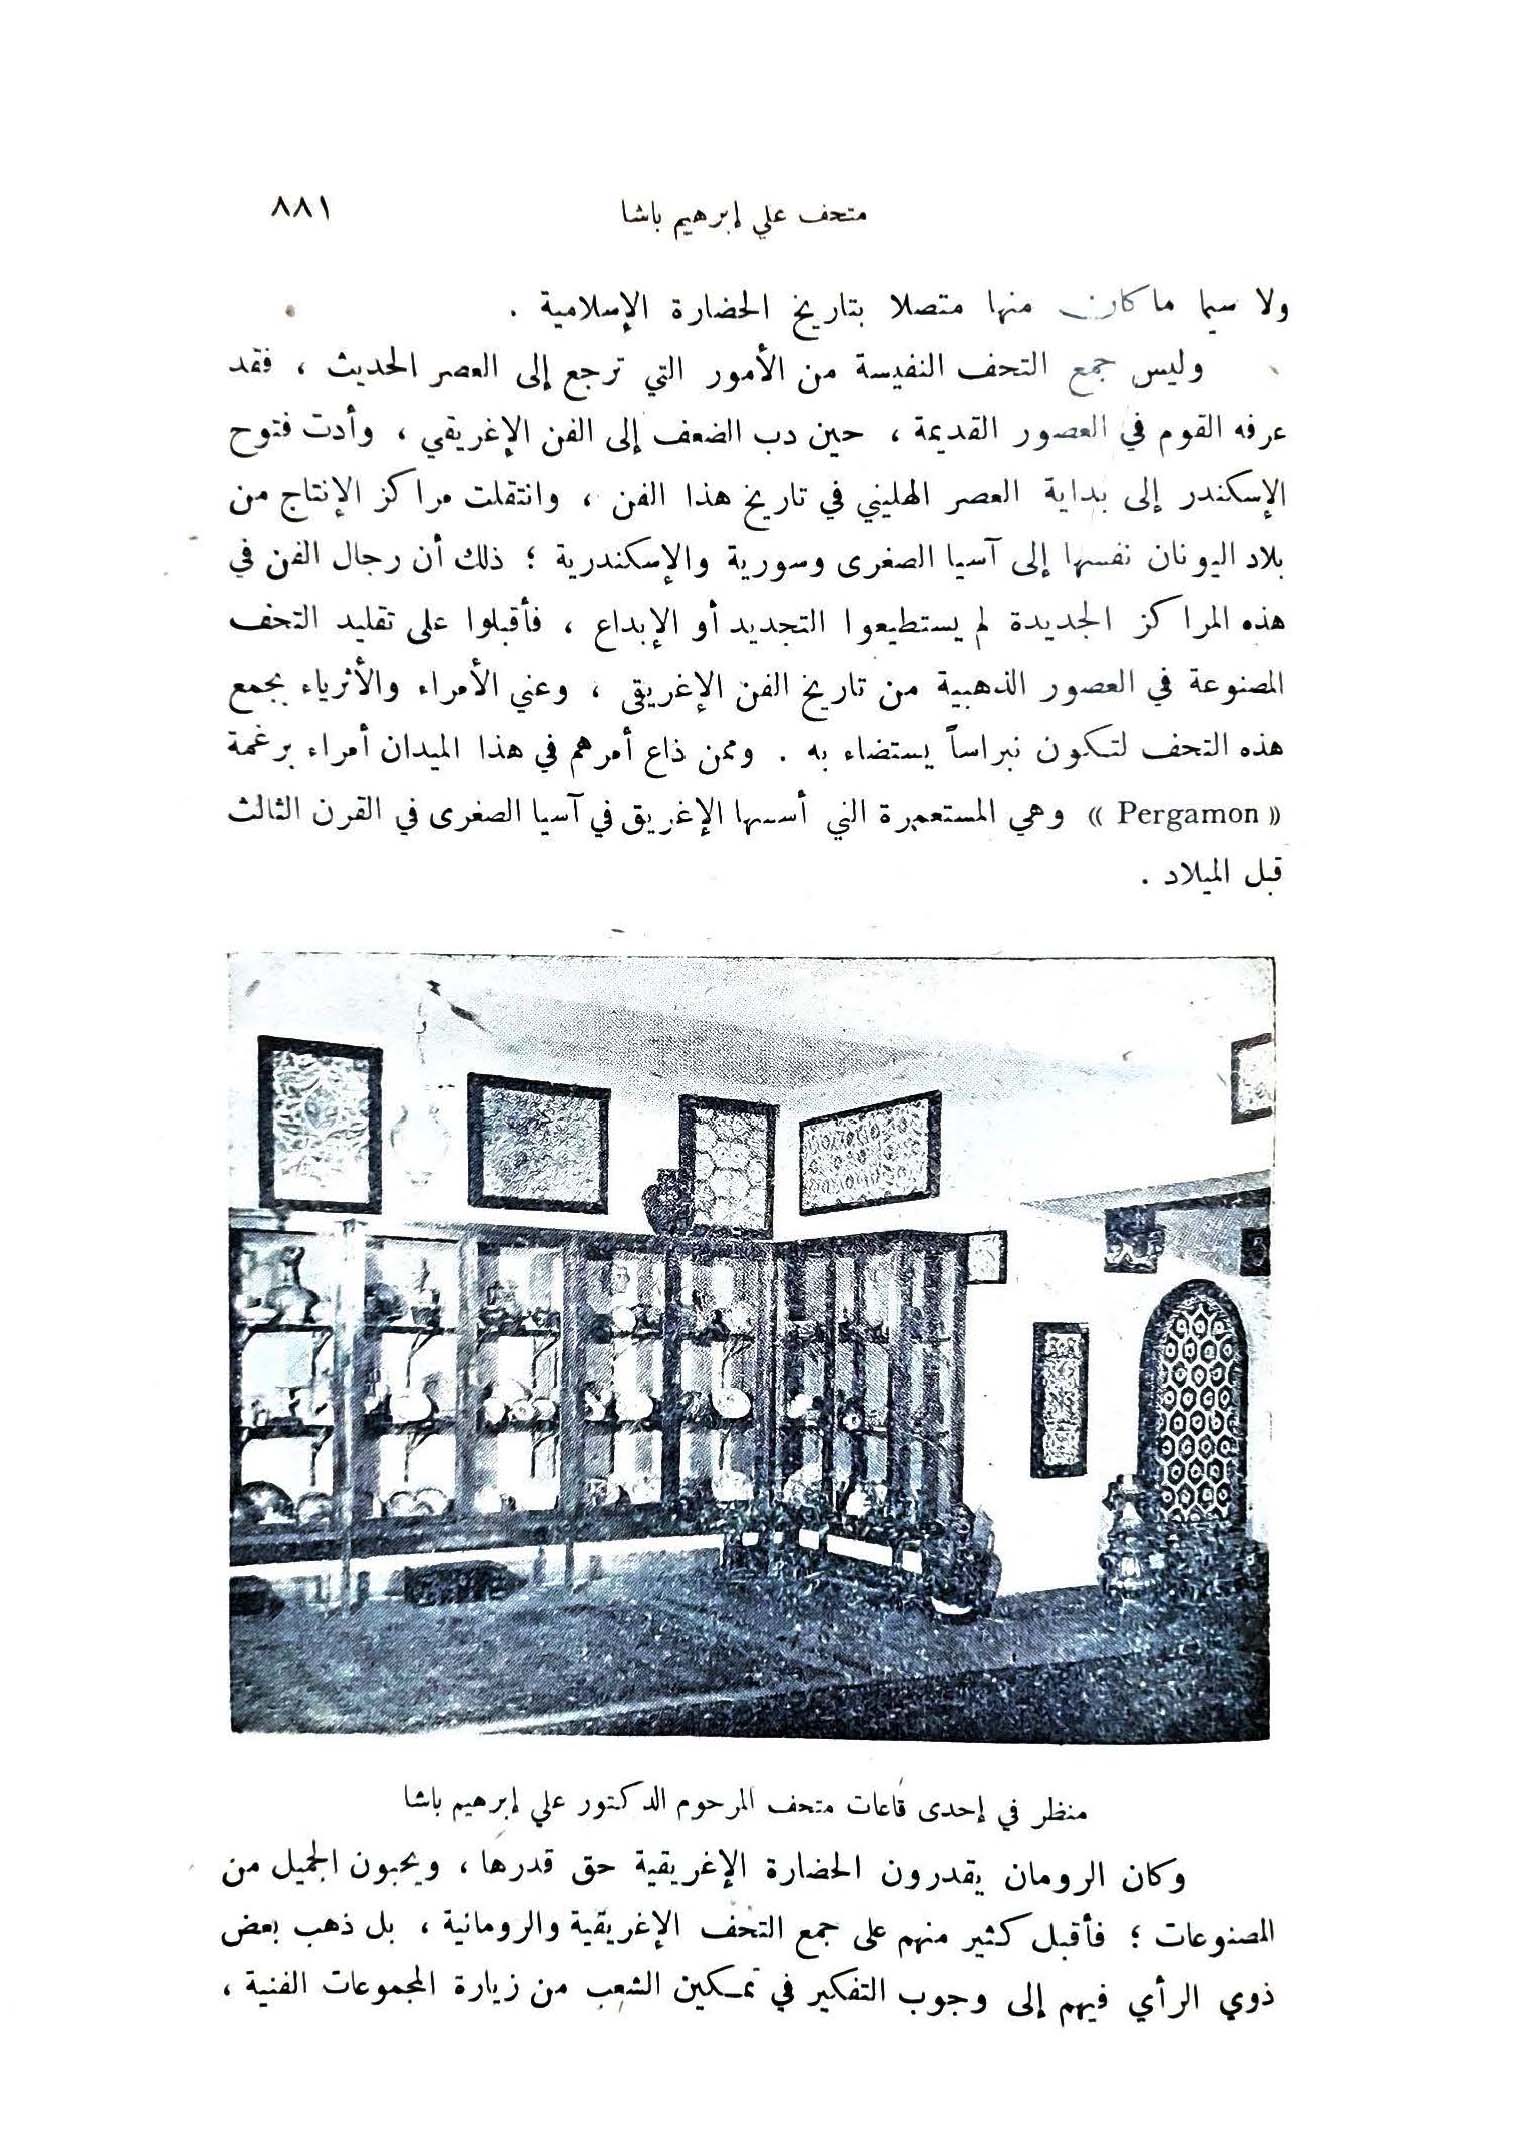 متحف علي إبرهيم باشا ٨٨١
ولا سيما ما كان منها متصلا بتاريخ الحضارة الإسلامية .
وليس جمع التحف النفيسة من الأمور التي ترجع إلى العصر الحديث ، فقد
عرفه القوم في العصور القديمة ، حين دب الضعف إلى الفن الإغريقي ، وأدت فتوح
الإسكندر إلى بداية العصر الهليني في تاريخ هذا الفن ، وانتقلت مراكز الإنتاج من
بلاد اليونان نفسها إلى آسيا الصغرى وسورية والإسكندرية ؛ ذلك أن رجال الفن في
هذه المراكز الجديدة لم يستطيعوا التجديد أو الإبداع ، فأقبلوا على تقليد التحف
المصنوعة في العصور الذهبية من تاريخ الفن الإغريقى ، وعني الأمراء والأثرياء بجمع
هذه التحف لتكون نبراساً يستضاء به . وممن ذاع أمرهم في هذا الميدان أمراء برغمة
« Pergamon » وهي المستعمرة التي أسسها الإغريق في آسيا الصغرى في القرن الثالث
قبل الميلاد .
منظر في إحدى قاعات متحف المرحوم الدكتور علي إبرهيم باشا
وكان الرومان يقدرون الحضارة الإغريقية حق قدرها ، ويحبون الجميل من
المصنوعات ؛ فأقبل كثير منهم على جمع التحف الإغريقية والرومانية ، بل ذهب بعض
ذوي الرأي فيهم إلى وجوب التفكير في تمكين الشعب من زيارة المجموعات الفنية ،